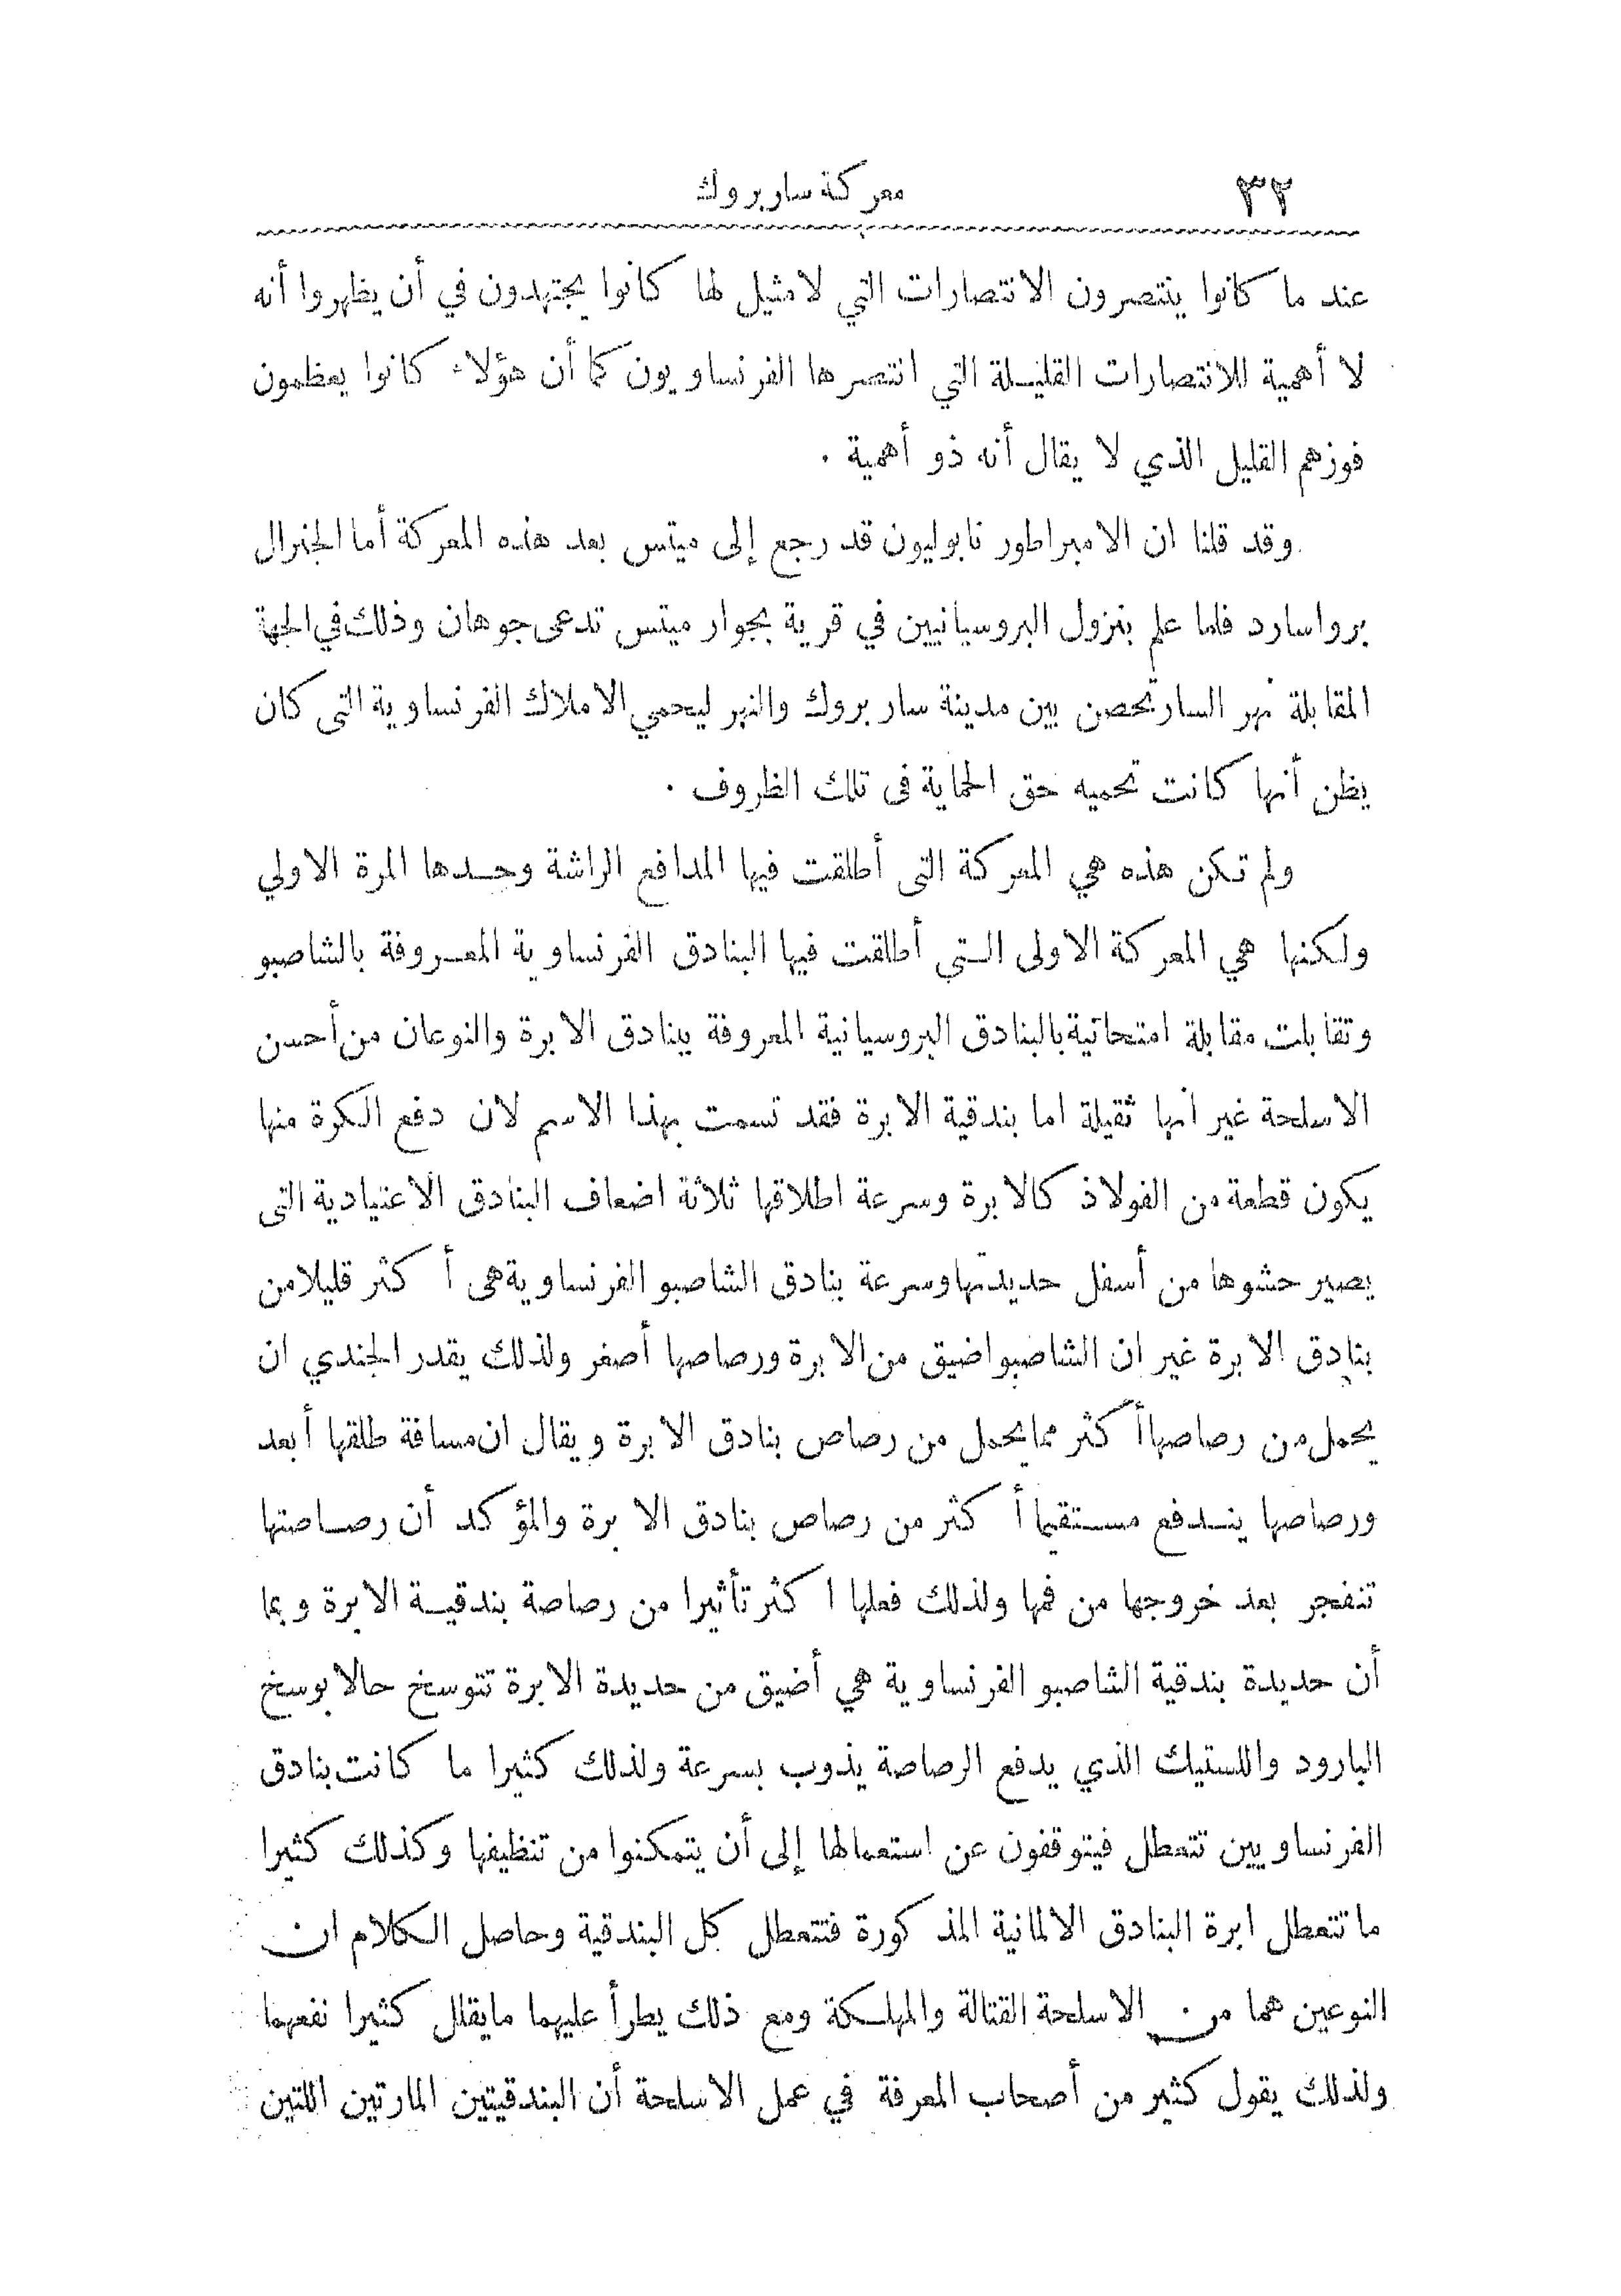 ٣٢ معركة ساربروك
عند ما كانوا ينتصرون الانتصارات التي لامثيل لها كانوا يجتهدون في أن يظهروا أنه
لا أهمية للانتصارات القليلة التي انتصرها الفرنساويون كما أن هؤلاء كانوا يعظمون
فوزهم القليل الذي لا يقال أنه ذو أهمية .
وقد قلنا ان الامبراطور نابوليون قد رجع إلى ميتس بعد هذه المعركة أما الجنرال
برواسارد فلما علم بنزول البروسيانيين في قرية بجوار ميتس تدعى جوهان وذلك في الجهة
المقابلة نهر السار تحصن بين مدينة سار بروك والنهر ليحمي الاملاك الفرنساوية التى كان
يظن أنها كانت تحميه حق الحماية فى تلك الظروف .
ولم تكن هذه هي المعركة التى أطلقت فيها المدافع الراشة وحدها المرة الاولي
ولكنها هي المعركة الاولى التي أطلقت فيها البنادق الفرنساوية المعروفة بالشاصبو
وتقابلت مقابلة امتحانية بالبنادق البروسيانية المعروفة ببنادق الابرة والنوعان من أحسن
الاسلحة غير انها ثقيلة اما بندقية الابرة فقد تسمت بهذا الاسم لان دفع الكرة منها
يكون قطعة من الفولاذ كالابرة وسرعة اطلاقها ثلاثة اضعاف البنادق الاعتيادية التى
يصير حشوها من أسفل حديدتها وسرعة بنادق الشاصبو الفرنساوية هى أكثر قليلا من
بنادق الابرة غير ان الشاصبو اضيق من الابرة ورصاصها أصغر ولذلك يقدر الجندي ان
يحمل من رصاصها أكثر مما يحمل من رصاص بنادق الابرة ويقال ان مسافة طلقها أبعد
ورصاصها يندفع مستقيما أكثر من رصاص بنادق الابرة والمؤكد أن رصاصتها
تنفجر بعد خروجها من فمها ولذلك فعلها اكثر تأثيرا من رصاصة بندقية الابرة وبما
أن حديدة بندقية الشاصبو الفرنساوية هي أضيق من حديدة الابرة تتوسخ حالا بوسخ
البارود واللستيك الذي يدفع الرصاصة يذوب بسرعة ولذلك كثيرا ما كانت بنادق
الفرنساويين تتعطل فيتوقفون عن استعمالها إلى أن يتمكنوا من تنظيفها وكذلك كثيرا
ما تتعطل ابرة البنادق الالمانية المذكورة فتتعطل كل البندقية وحاصل الكلام ان
النوعين هما من الاسلحة القتالة والمهلكة ومع ذلك يطرأ عليهما مايقلل كثيرا نفعهما
ولذلك يقول كثير من أصحاب المعرفة في عمل الاسلحة أن البندقيتين المارتين اللتين